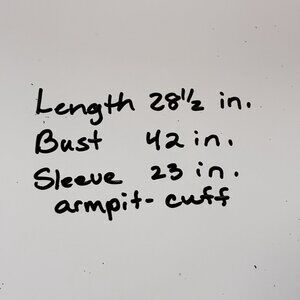 Length 28 1/2 in.
Bust 42 in.
Sleeve 23 in.
armpit - cuff